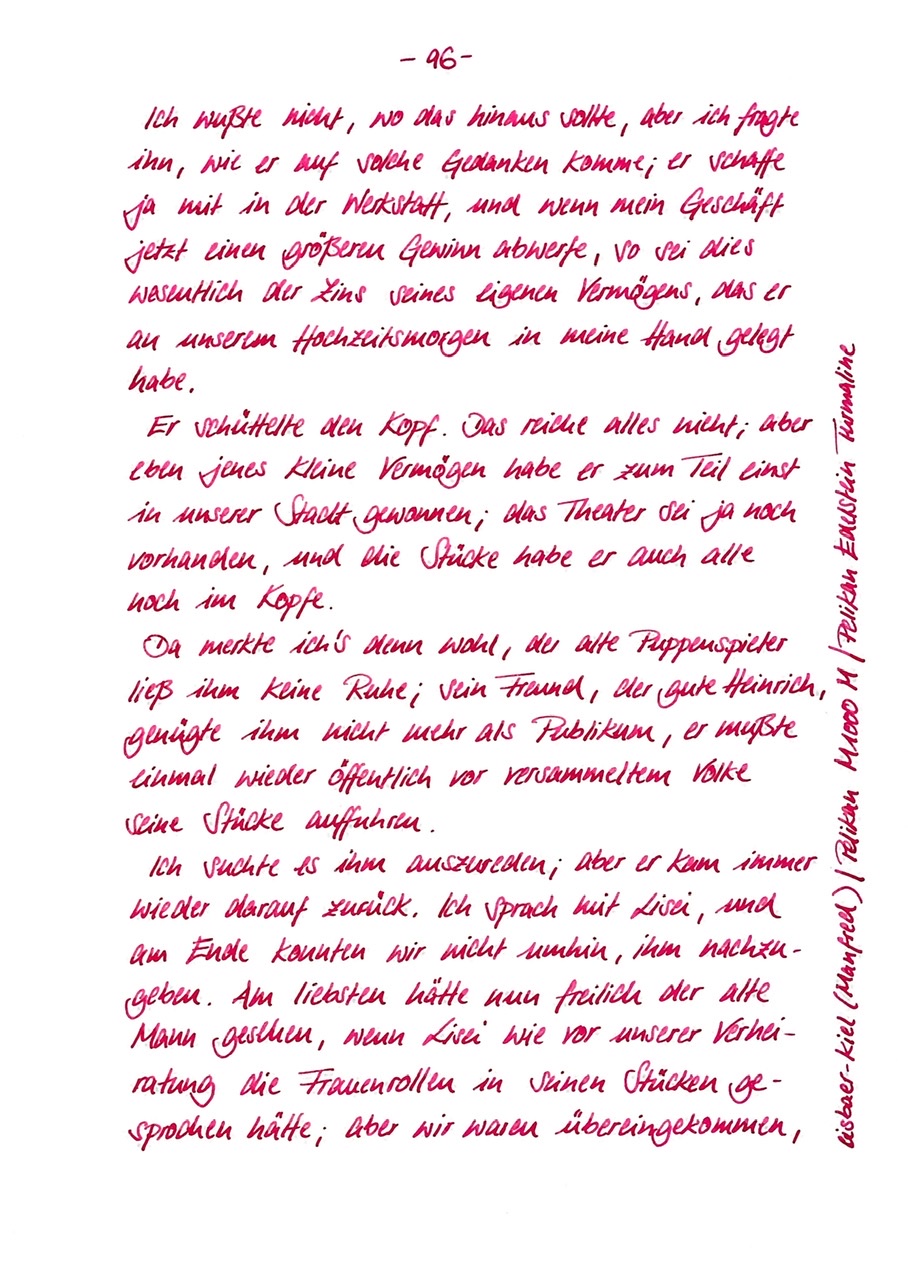 - 96 -
Ich wußte nicht, wo das hinaus sollte, aber ich fragte
ihn, wie er auf solche Gedanken komme; er schaffe
ja mit in der Werkstatt, und wenn mein Geschäft
jetzt einen größeren Gewinn abwerfe, so sei dies
wesentlich der Zins seines eigenen Vermögens, das er
an unserem Hochzeitsmorgen in meine Hand gelegt
habe.
Er schüttelte den Kopf. Das reiche alles nicht; aber
eben jenes kleine Vermögen habe er zum Teil einst
in unserer Stadt gewonnen; das Theater sei ja noch
vorhanden, und die Stücke habe er auch alle
noch im Kopfe.
Da merkte ich's denn wohl, der alte Puppenspieler
ließ ihm keine Ruhe; sein Freund, der gute Heinrich,
genügte ihm nicht mehr als Publikum, er mußte
einmal wieder öffentlich vor versammeltem Volke
seine Stücke aufführen.
Ich suchte es ihm auszureden; aber er kam immer
wieder darauf zurück. Ich sprach mit Lisei, und
am Ende konnten wir nicht umhin, ihm nachzu-
geben. Am liebsten hätte nun freilich der alte
Mann gesehen, wenn Lisei wie vor unserer Verhei-
ratung die Frauenrollen in seinen Stücken ge-
sprochen hätte; aber wir waren übereingekommen,
eisbaer-kiel (Manfred) / Pelikan M1000 M / Pelikan Edelstein Turmaline